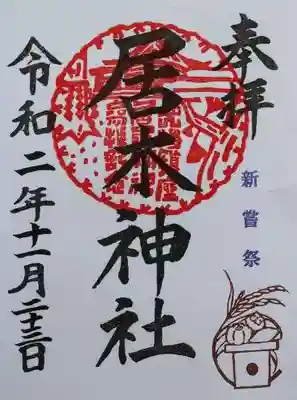 奉拝
新嘗祭
居木神社
令和二年十一月二十三日